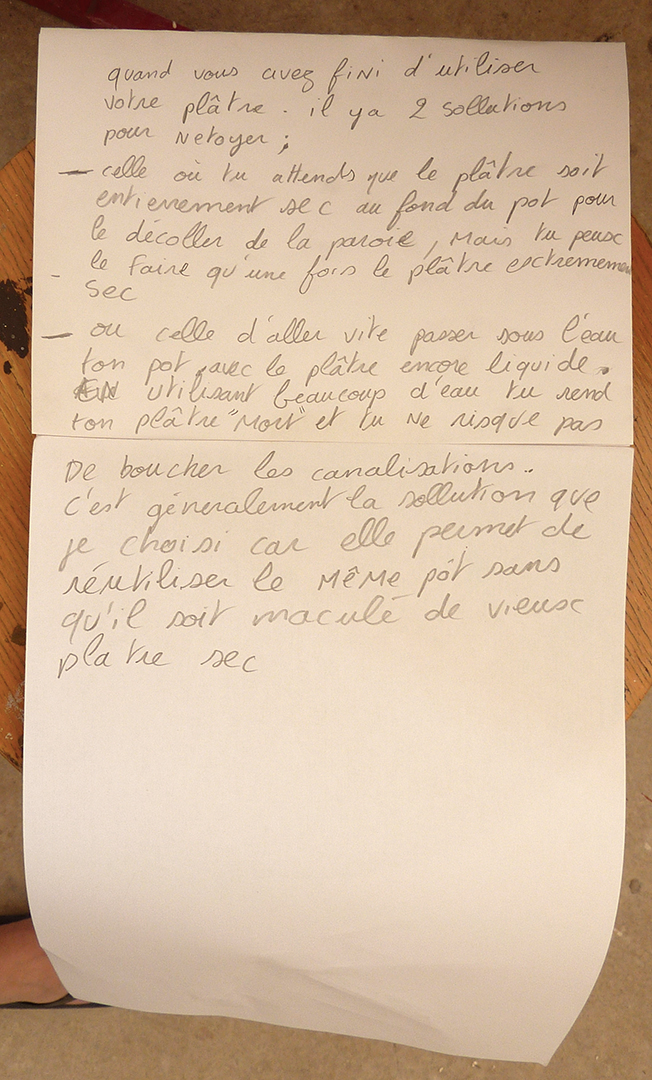 quand vous avez fini d'utiliser
votre plâtre. il ya 2 sollutions
pour Netoyer ;
- celle où tu attends que le plâtre soit
entierement sec au fond du pot pour
le décoller de la paroie, Mais tu peux
- le faire qu'une fois le plâtre extrememen
sec
- ou celle d'aller vite passer sous l'eau
ton pot, avec le plâtre encore liquide.
EN utilisant beaucoup d'eau tu rend
ton plâtre "Mort" et tu Ne risque pas
De boucher les canalisations..
c'est géneralement la sollution que
je choisi car elle permet de
réutiliser le MêMe pôt sans
qu'il soit maculé de vieux
platre sec